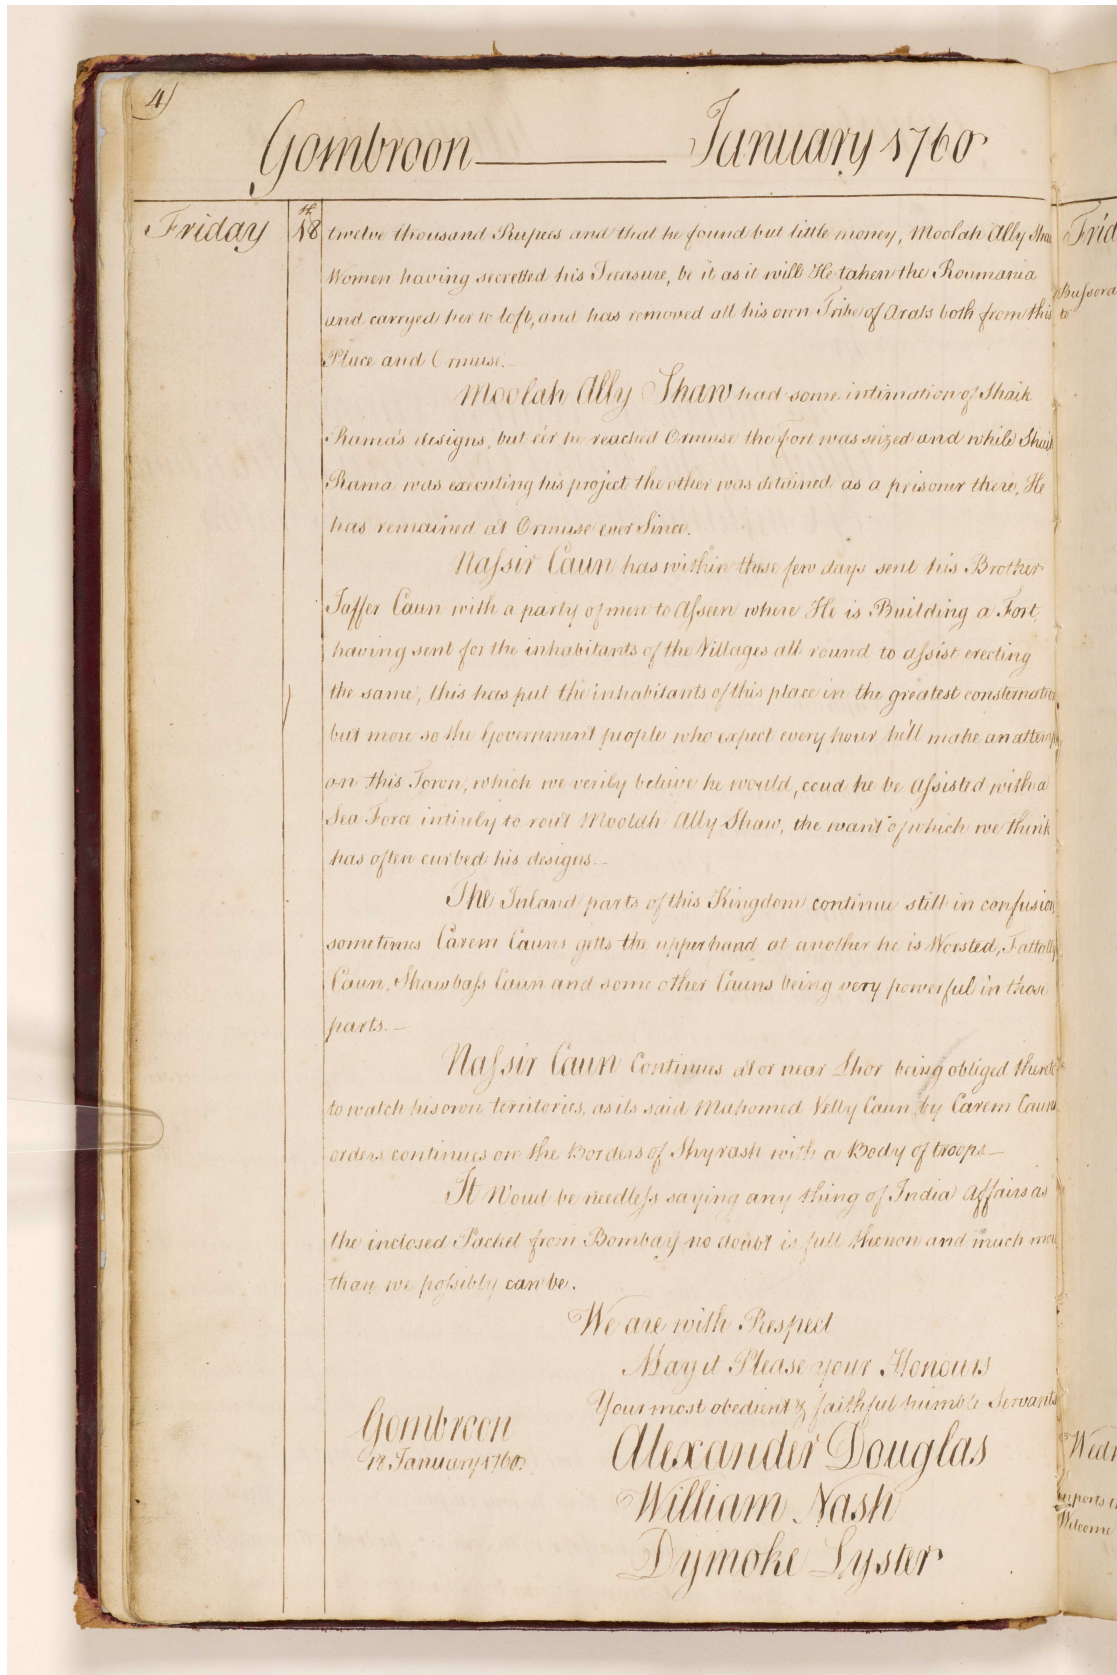 4)
Gombroon — January 1760
Friday 18 twelve thousand Rupees and that he found but little money, Moolah Ally Shaw
Women having secretted his Treasure, be it as it will He taken the Roumania
and carryed her to loft, and has removed all his own Tribe of Arabs both from this
Place and Ormuse.
Moolah Ally Shaw had some intimation of Shaik
Rama's designs, but e'er he reached Ormuse the Fort was seized and while Shaik
Rama was executing his project the other was detained as a prisoner there, He
has remained at Ormuse ever Since.
Nassir Caun has within these few days sent his Brother
Jaffer Caun with a party of men to Asseen where He is Building a Fort,
having sent for the inhabitants of the Villages all round to assist erecting
the same, this has put the inhabitants of this place in the greatest consternation
but more so the Government people who expect every hour he'll make an attempt
on this Town, which we verily believe he would, coud he be assisted with a
Sea Force intirely to rout Moolah Ally Shaw, the want of which we think
has often curbed his designs.
The Inland parts of this Kingdom continue still in confusion
sometimes Carem Cauns getts the upper hand at another he is Worsted, Fattally
Caun, Shawbass Caun and some other Cauns being very powerful in those
parts.
Nassir Caun Continues at or near Lhor being obliged thereto
to watch his own territories, as its said Mahomed Velly Caun by Carem Cauns
orders continues on the Borders of Shyrash with a Body of troops
It Woud be needless saying any thing of India Affairs as
the inclosed Packet from Bombay no doubt is full thereon and much more
than we possibly can be.
We are with Respect
May it Please your Honours
Your most obedient & faithful humble Servants
Gombroon
18 January 1760
Alexander Douglas
William Nash
Dymoke Lyster
Frid
Bussora
to
Wedn
Welcome